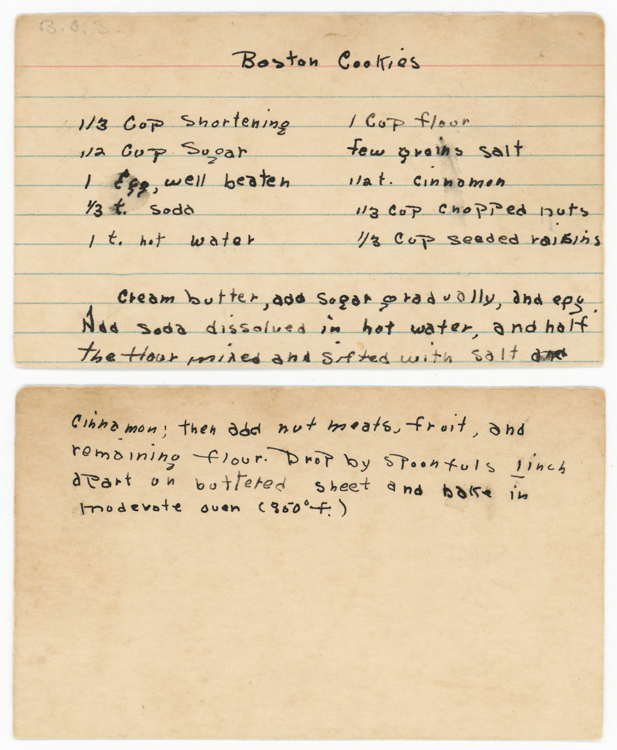 B.C.S.
Boston Cookies
1/3 Cup shortening
1/2 Cup Sugar
1 Egg, well beaten
1/3 t. soda
1 t. hot water
1 Cup flour
few grains salt
1/2 t. cinnamon
1/3 cup chopped nuts
1/3 Cup seeded raisins
Cream butter, add sugar gradually, and egg.
Add soda dissolved in hot water, and half
the flour mixed and sifted with salt and
Cinnamon; then add nut meats, fruit, and
remaining flour. Drop by spoonfuls 1 inch
apart on buttered sheet and bake in
moderate oven (350°f.)